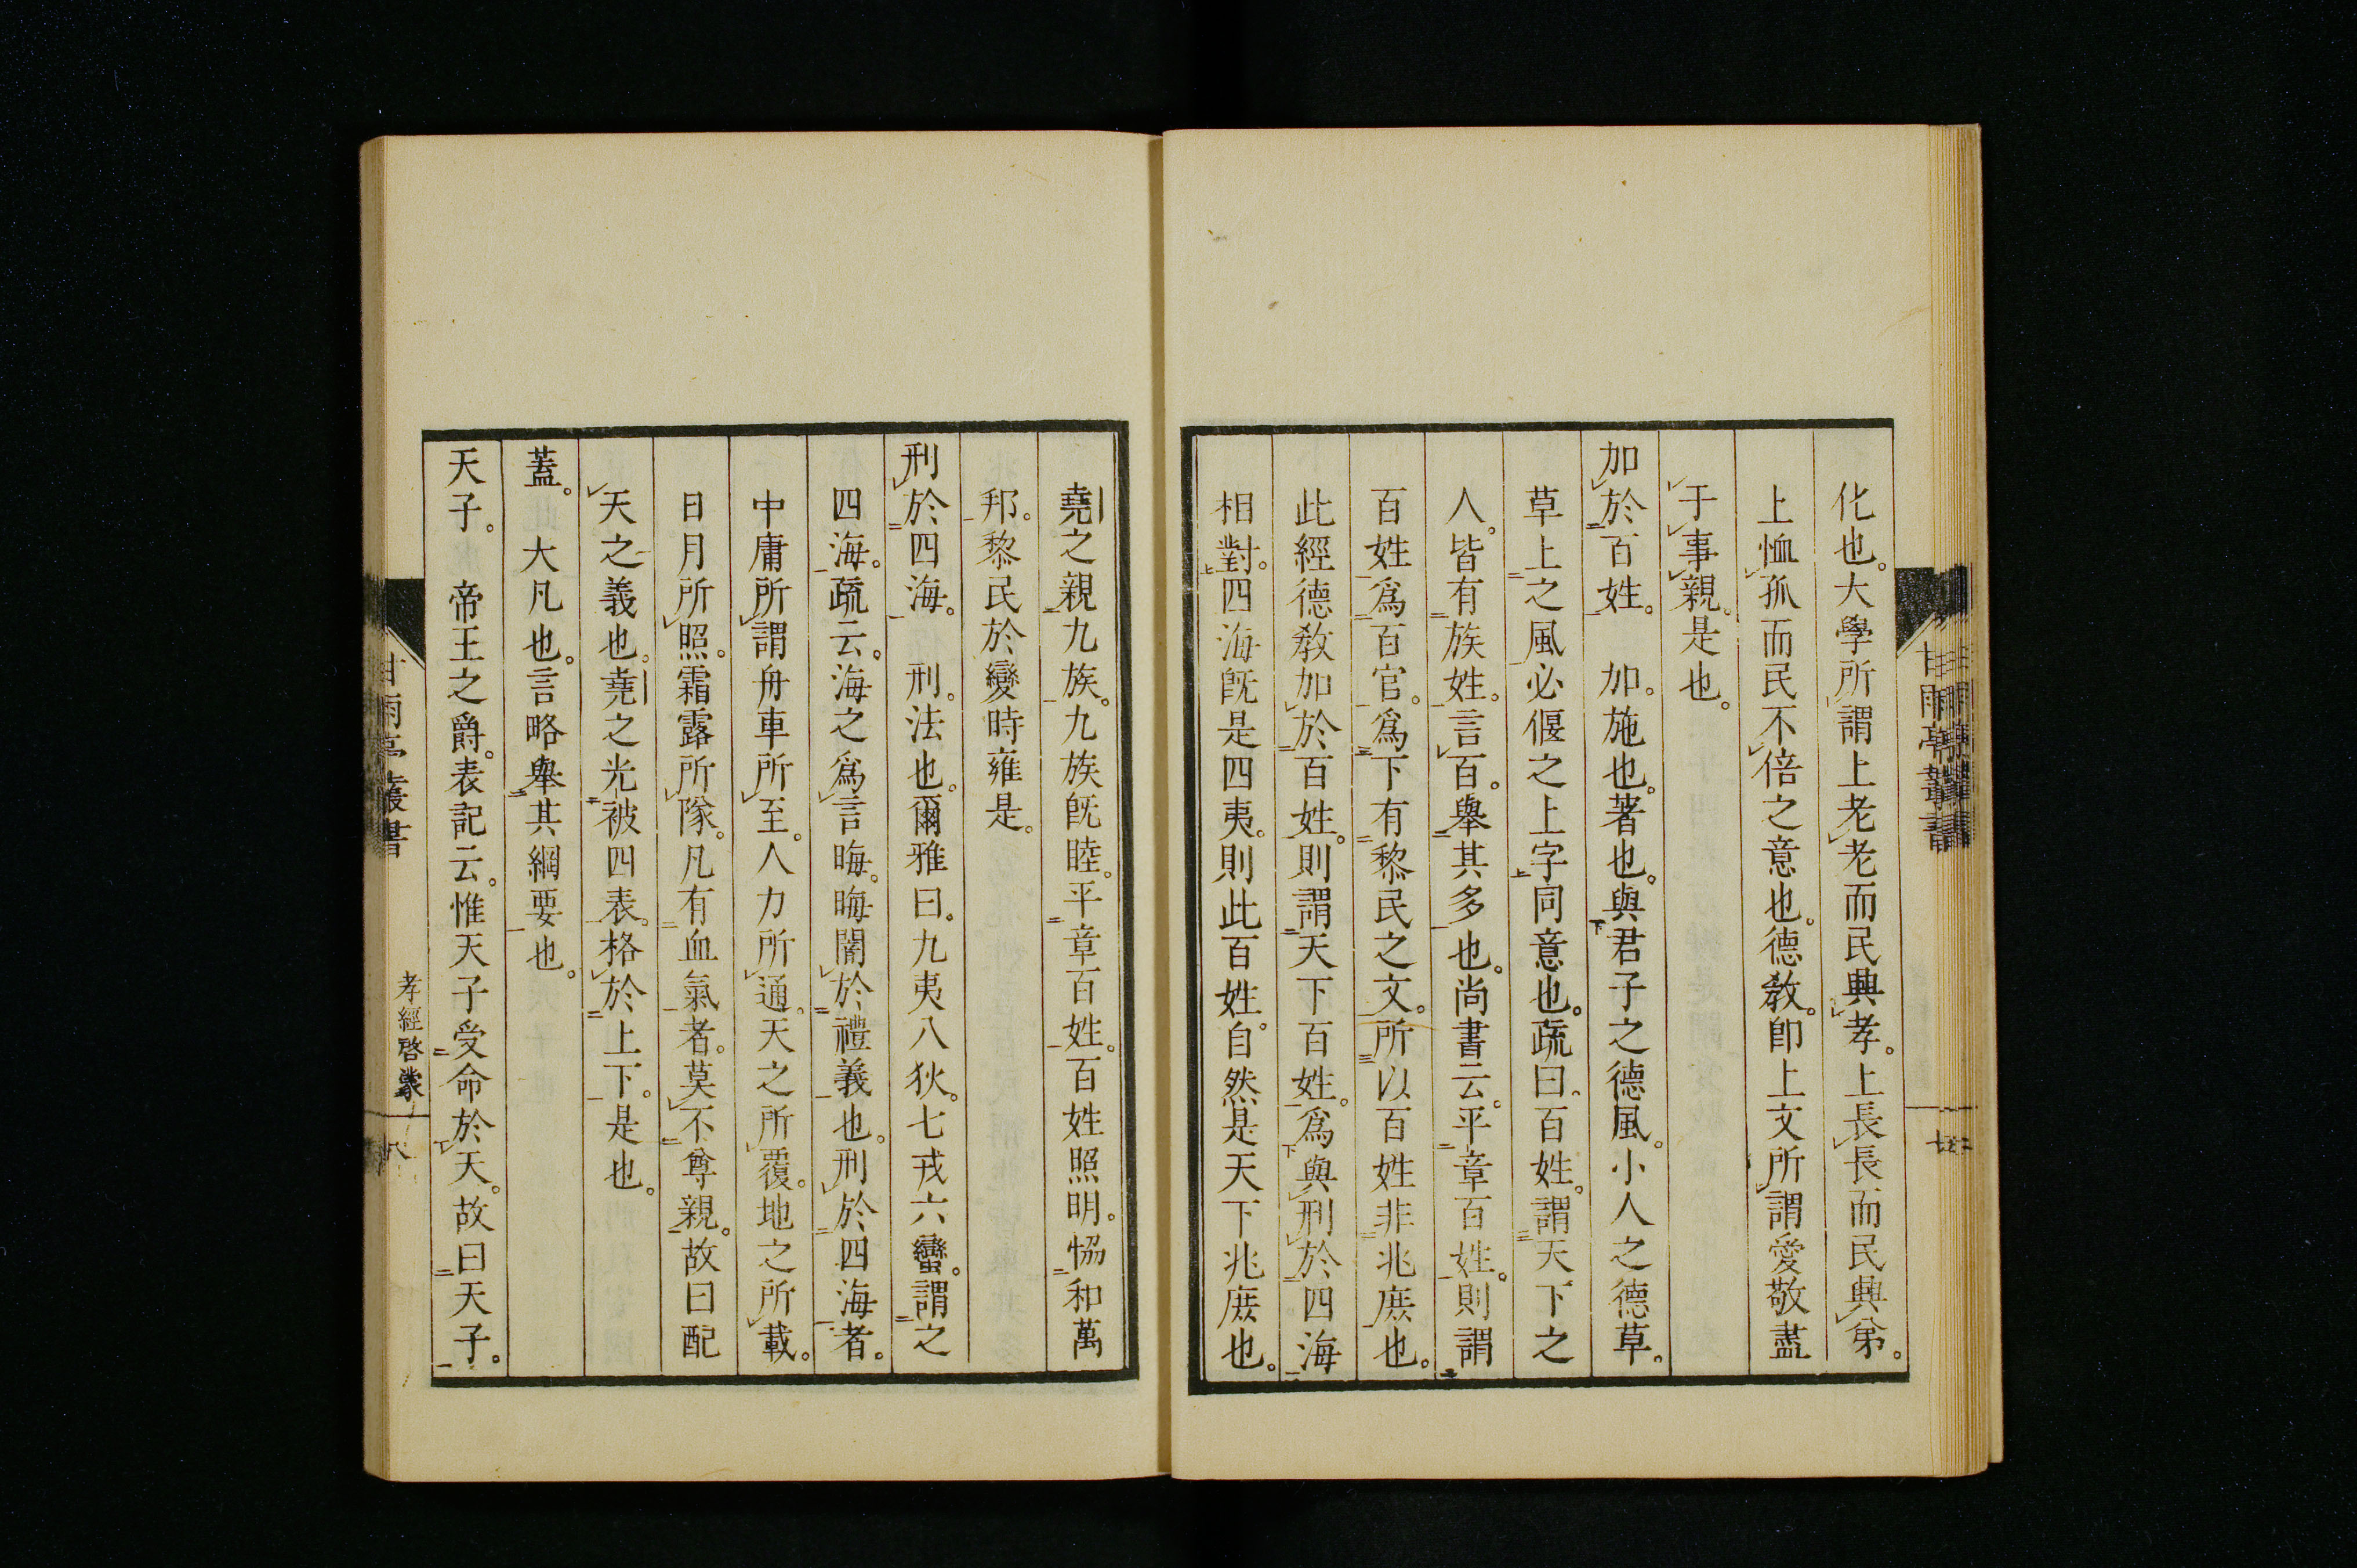 化也。大學所謂上老老而民興孝。上長長而民興弟。
上恤孤而民不倍之意也。德敎。卽上文所謂愛敬盡
于事親。是也。
加於百姓。 加。施也。著也。與君子之德風。小人之德草。
草上之風必偃之上字同意也。疏曰。百姓。謂天下之
人。皆有族姓。言百。舉其多也。尚書云。平章百姓。則謂
百姓爲百官。爲下有黎民之文。所以百姓非兆庶也。
此經德敎加於百姓。則謂天下百姓。爲與刑於四海
相對。四海旣是四夷。則此百姓。自然是天下兆庶也。
堯之親九族。九族旣睦。平章百姓。百姓照明。恊和萬
邦。黎民於變時雍是。
刑於四海。 刑。法也。爾雅曰。九夷八狄。七戎六蠻。謂之
四海。疏云。海之爲言晦。晦闇於禮義也。刑於四海者。
中庸所謂舟車所至。人力所通。天之所覆。地之所載。
日月所照。霜露所隊。凡有血氣者。莫不尊親。故曰配
天之義也。堯之光被四表。格於上下。是也。
蓋。 大凡也。言略舉其綱要也。
天子。 帝王之爵。表記云。惟天子受命於天。故曰天子。
甘雨亭叢書
孝經啓蒙
八
甘雨亭叢書